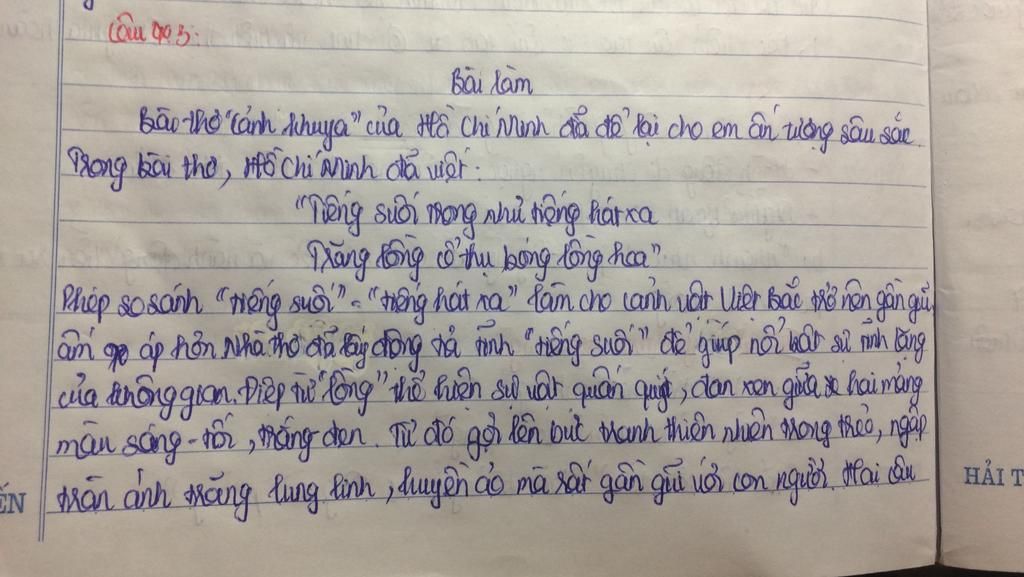 Câu 3:
Bài làm
Bài thơ "Cảnh khuya" của Hồ Chí Minh đã để lại cho em ấn tượng sâu sắc.
Trong bài thơ, Hồ Chí Minh đã viết:
"Tiếng suối trong như tiếng hát xa
Trăng lồng cổ thụ bóng lồng hoa"
Phép so sánh "tiếng suối" - "tiếng hát xa" làm cho cảnh vật Việt Bắc trở nên gần gũi
ấm áp hơn. Nhà thơ đã lấy động tả tĩnh "tiếng suối" để giúp nổi bật sự tĩnh lặng
của không gian. Điệp từ "lồng" thể hiện sự vật quấn quýt, đan xen giữa hai mảng
màu sáng - tối, trắng - đen. Từ đó gợi lên bức tranh thiên nhiên trong trẻo, ngập
tràn ánh trăng lung linh, huyền ảo mà rất gần gũi với con người. Hai câu
HẢI T
ẾN